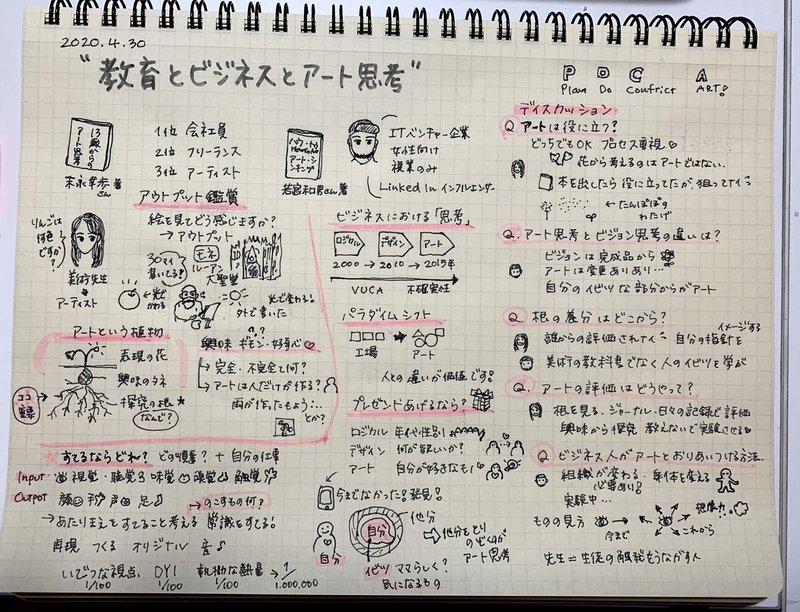 2020.4.30
"教育とビジネスとアート思考"
P D C A
Plan Do Confrict ART!
13歳からのアート思考
末永幸歩さん著
1位 会社員
2位 フリーランス
3位 アーティスト
アウトプット鑑賞
絵を見てどう感じますか?
→アウトプット
りんごは何色ですか?
美術先生
アーティスト
30マイ書いてる!
モネ
ルーアン大聖堂
←光でかわる
光で変わる!
外で書いた
興味・ギモン・好奇心
→完全・不完全と何?
→アートは人だけが作る?
雨が作ったもよう…
とか?
アートという植物
表現の花
興味のタネ
探究の根
なんで?
ココ
ハウ・トゥ アート・シンキング
若宮和男さん著
ITベンチャー企業
女性向け
複業のみ
Linked In インフルエンサー
ビジネスにおける「思考」
ロジカル デザイン アート
2000 → 2010 → 2015年
VUCA 不確実性
パラダイムシフト
工場 アート
人との違いが価値です。
プレゼントあげるなら?
ロジカル 年代や性別
デザイン 何が欲しいか?
アート 自分が好きなもの
今までなかった!発見!
自分
他分
自分
イビツ ママらしく?
気になるもの
他分をとりのぞくのがアート思考
すてるならどれ? どの順番? + 自分の仕事
Input 視覚・聴覚 味覚 嗅覚 触覚
Output 顔 手 声 足
→のこすもの何?
→あたりまえをすてること考える 常識をすてる!
再現 つくる オリジナル 音♪
いびつな視点 DYI 執拗な熱量 → 1/1.000.000
1/100 1/100 1/100
ディスカッション
Q. アートは役に立つ?
どっちでもOK プロセス重視
花から考えるのはアートではない.
本を出したら役に立ってたが 狙ってナイ
←たんぽぽのわたげ
Q. アート思考とビジョン思考の違いは?
ビジョンは完成品から
アートは変更ありあり…
自分のイビツな部分からがアート
Q. 根の養分はどこから?
誰からの評価されナイ 自分の指針を
イメージする
美術の教科書でなく人のイビツを学ぶ
Q. アートの評価はどうやって?
根を見る. ジャーナル・日々の記録で評価
興味から探究 教えないで実験させる
Q. ビジネス人がアートとおりあいつける方法.
組織が変わる・年体を変える
必要あり!
実験中…
ものの見方
今まで
想像力
これから
先生=生徒の触発をうながす人